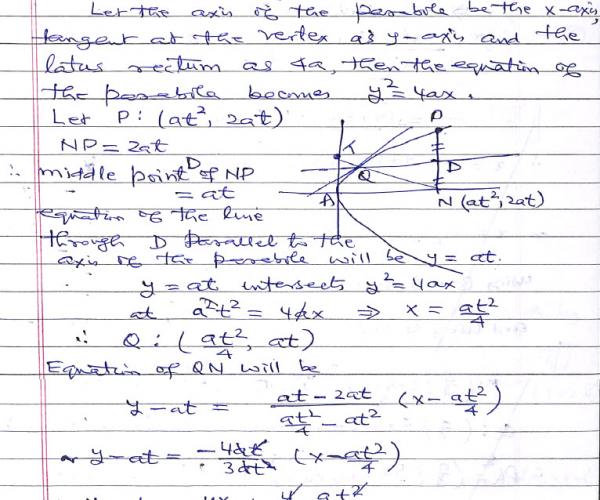 Let the axis of the parabola be the x-axis,
tangent at the vertex as y-axis and the
latus rectum as 4a, then the equation of
the parabola becomes y² = 4ax.
Let P: (at², 2at)
NP = 2at
∴ middle point D of NP
= at
equation of the line
through D parallel to the
axis of the parabola will be y = at.
P
T
D
Q
A
N (at², 2at)
y = at intersects y² = 4ax
at a²t² = 4ax ⇒ x = at²/4
∴ Q: (at²/4, at)
Equation of QN will be
y - at = (at - 2at)/(at²/4 - at²) (x - at²/4)
~ y - at = -4at/3at² (x - at²/4)